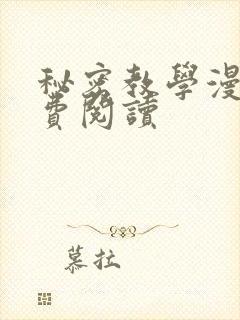 秘密教學漫
費閱讀
慕拉